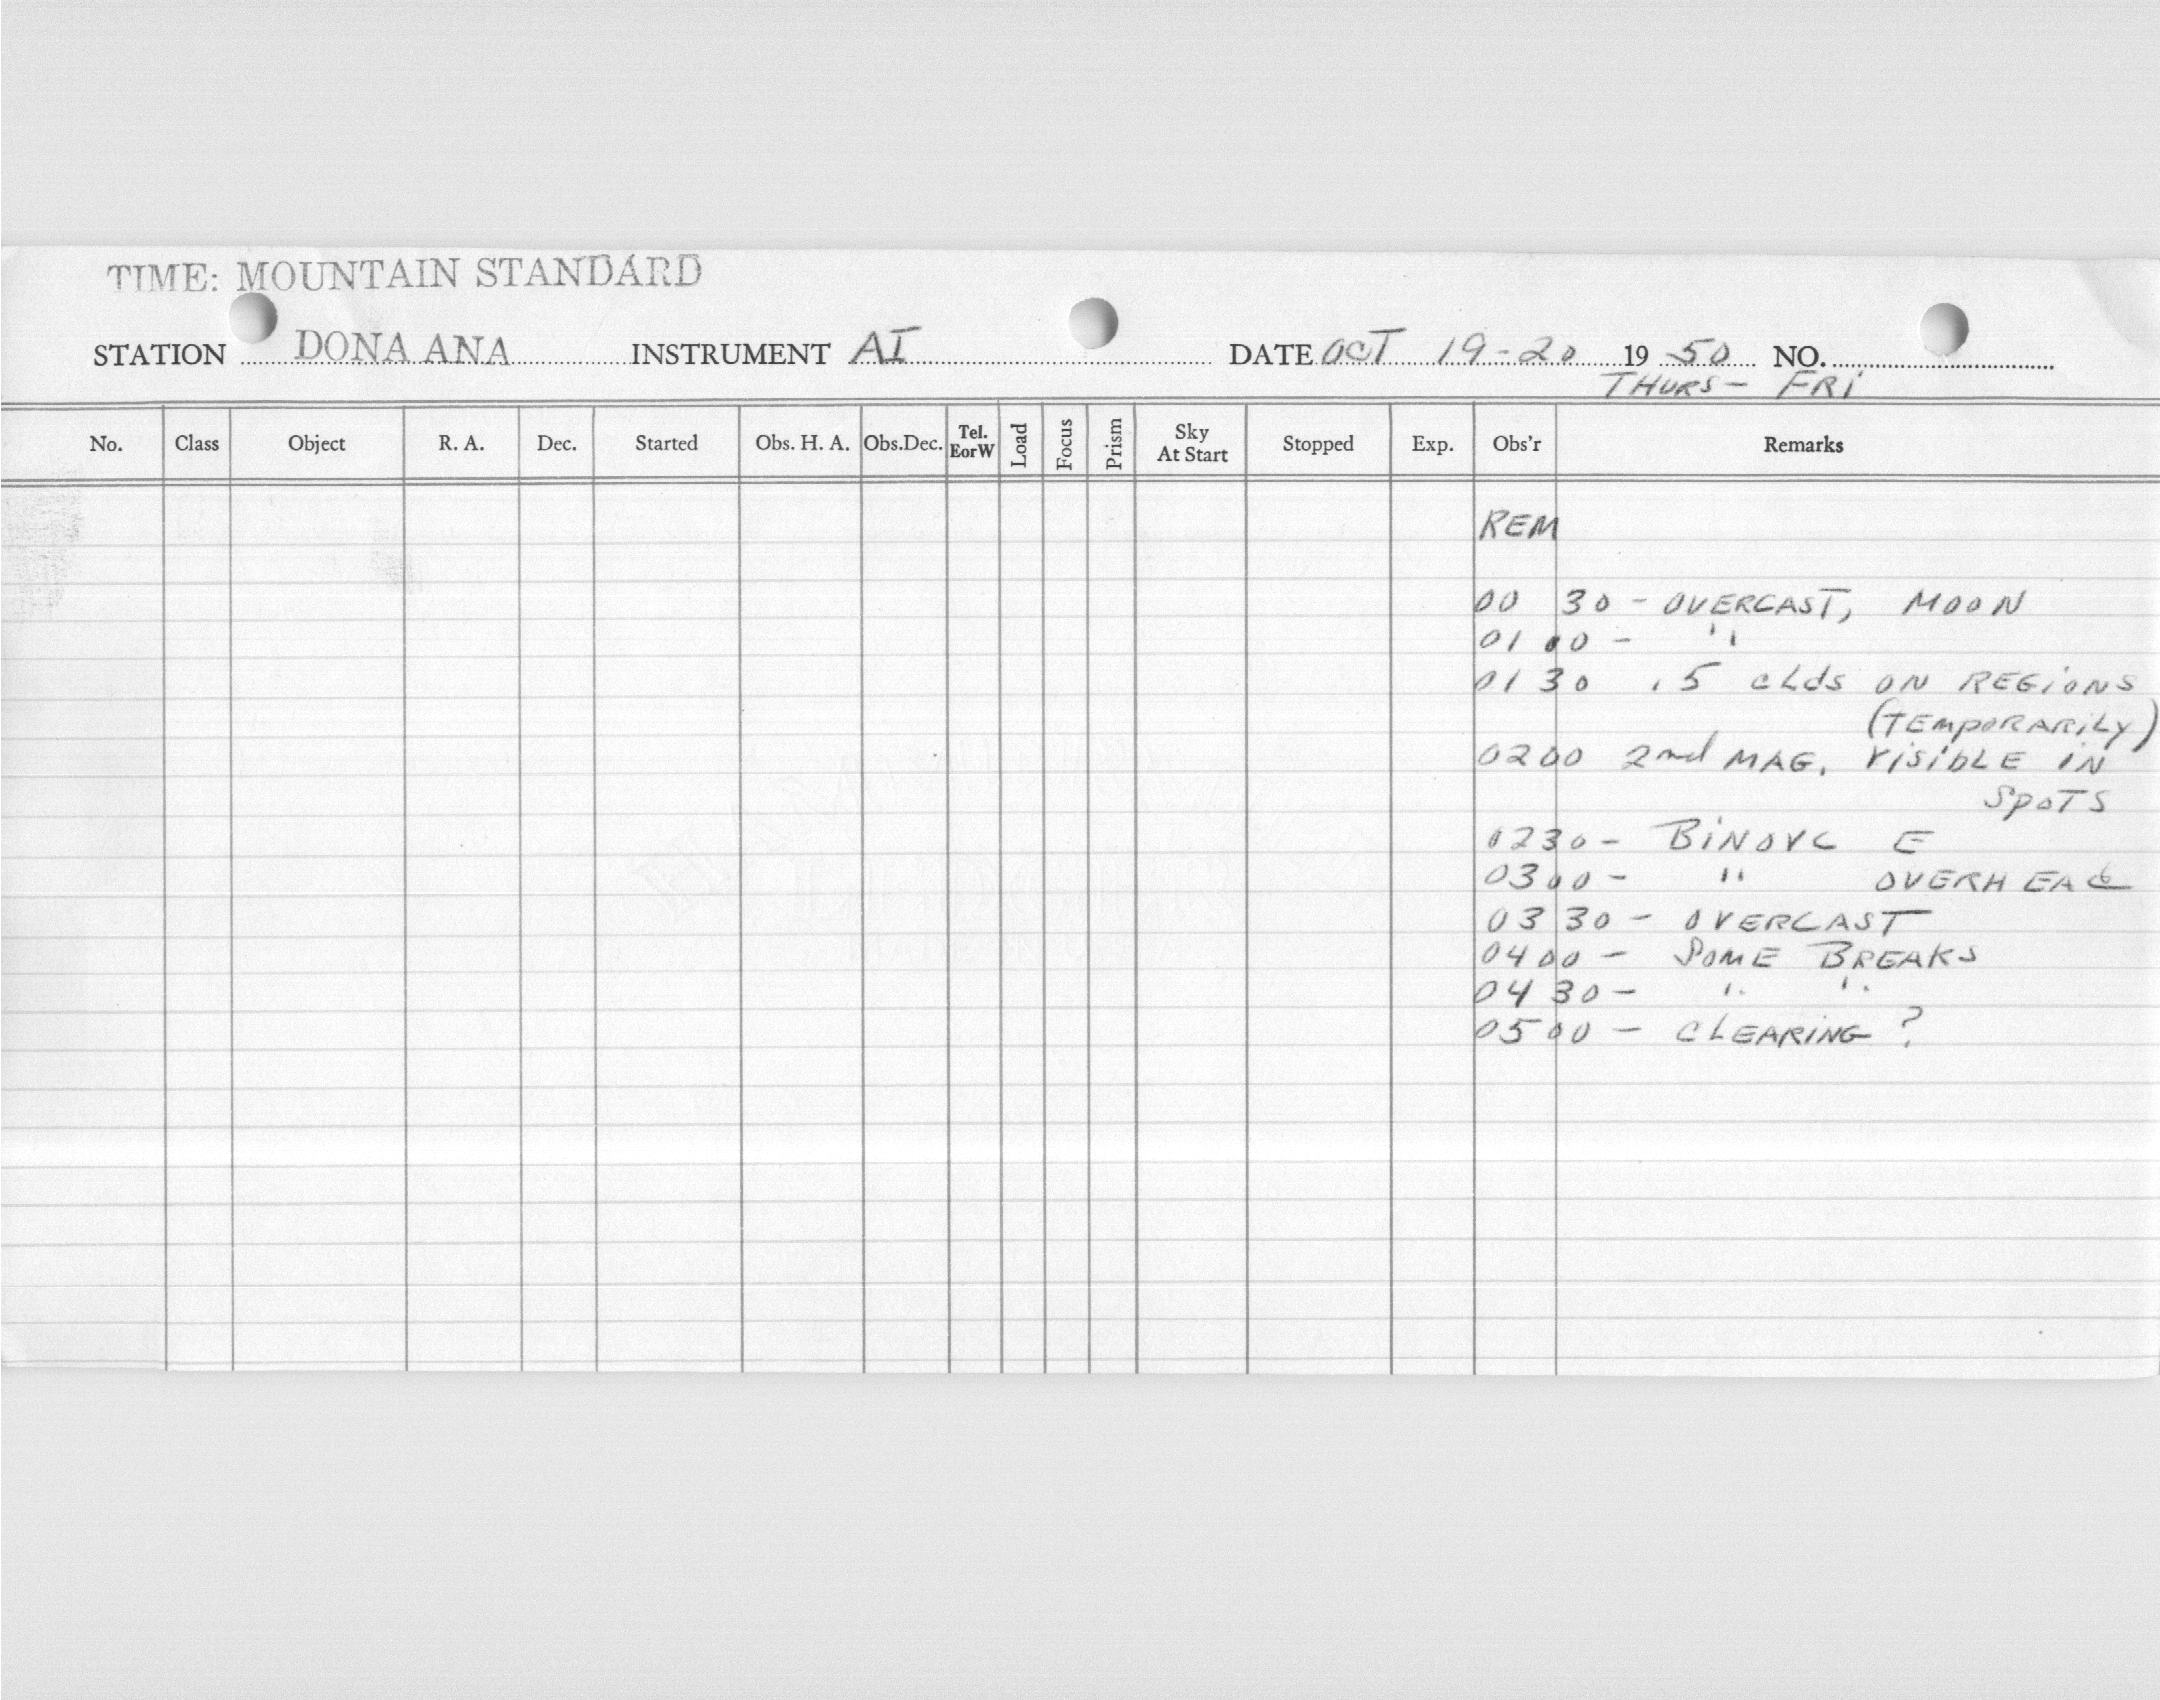 TIME: MOUNTAIN STANDARD
STATION DONA ANA INSTRUMENT AI DATE OCT 19-20 19 50 NO.
THURS - FRI
No. Class Object R. A. Dec. Started Obs. H. A. Obs.Dec. Tel. EorW Load Focus Prism Sky At Start Stopped Exp. Obs'r Remarks
REM
00 30 - OVERCAST, MOON
01 00 - "
01 30 .5 cLds ON REGiONS
(TEMPORARiLY)
0200 2nd MAG. ViSibLE iN
SPOTS
0230 - BiNOVC E
0300 - " OVERHEAd
03 30 - OVERCAST
0400 - SOME BREAKS
04 30 - " "
0500 - CLEARiNG ?